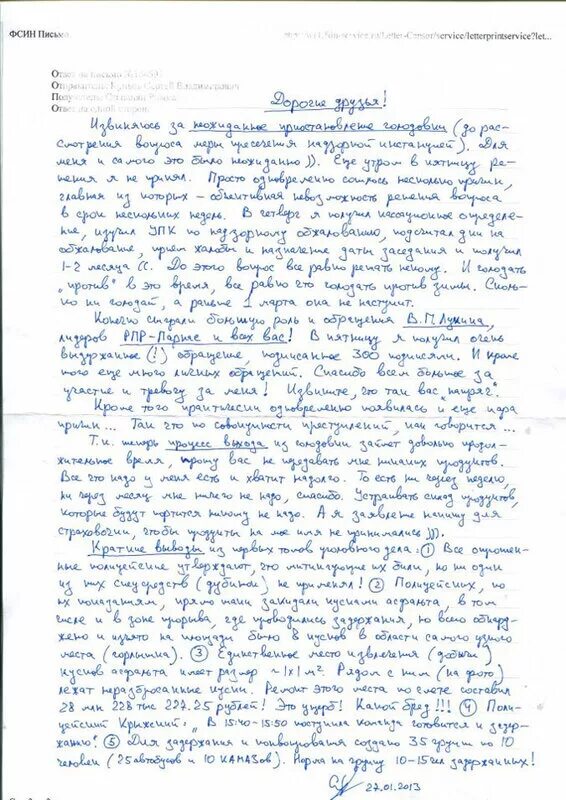 ФСИН Письмо
Ответ на письмо
Отправитель: Сергей Владимирович
Получатель:
Ответ на одной стороне
Дорогие друзья!
Извиняюсь за неожиданное приостановление голодовки (до рас-
смотрения вопроса меры пресечения надзорной инстанцией). Для
меня и самого это было неожиданно )). Еще утром в пятницу ре-
шения я не принял. Просто одновременно сошлось несколько причин,
главная из которых – объективная невозможность решения вопроса
в срок нескольких недель. В четверг я получил кассационное определе-
ние, изучил УПК по надзорному обжалованию, подсчитал дни на
обжалование, прием жалобы и назначение даты заседания и получил
1-2 месяца СС. До этого вопрос все равно решать некому. И голодать
"против" в это время, все равно что голодать против зимы. Сколь-
ко ни голодай, а раньше 1 марта она не наступит.
Конечно сыграли большую роль и обращения В.П. Лукина,
лидеров РПР-Парнас и всех вас! В пятницу я получил очень
выдержанное (!) обращение, подписанное 300 подписями. И кроме
того еще много личных обращений. Спасибо всем большое за
участие и тревогу за меня! Извините, что так вас "напряг".
Кроме того практически одновременно появилась и еще пара
причин... Так что по совокупности преступлений, как говорится...
Т.к. теперь процесс выхода из голодовки займет довольно продол-
жительное время, прошу вас не передавать мне никаких продуктов.
Все что надо у меня есть и хватит надолго. То есть ни через неделю,
ни через месяц мне ничего не надо, спасибо. Устраивать склад продуктов,
которые будут портится никому не надо. А я заявление напишу для
страховочки, чтобы продукты на мое имя не принимались ))).
Краткие выводы из первых томов уголовного дела: ① Все опрошен-
ные полицейские утверждают, что митингующие их били, но ни один
из них спецсредств (дубинок) не применял! ② Полицейских, по
их показаниям, прямо-таки закидали кусками асфальта, в том
числе и в зоне прорыва, где проводились задержания, но всего обнару-
жено и изъято на площади было 8 кусков в области самого узкого
места (горлышка). ③ Единственное место извлечения (добычи)
кусков асфальта имеет размер ~1х1 м². Рядом с ним (на фото)
лежат неразбросанные куски. Ремонт этого места по смете составил
28 млн 228 тыс 227.25 рублей! Это ущерб! Какой бред!!! ④ Поли-
цейский Крыжский: "В 15:40-15:50 поступила команда готовится к задер-
жанию". ⑤ Для задержания и конвоирования создано 35 групп по 10
человек (25 автобусов и 10 КАМАЗов). Норма на группу 10-15 чел задержанных!
27.01.2013